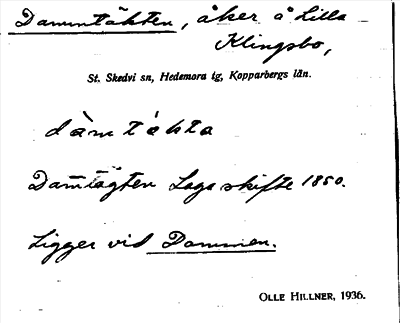 Dammtäkten, åker å Lilla
Klingsbo,
St. Skedvi sn, Hedemora tg, Kopparbergs län.
dàmtákta
Dam̄tägten Laga skifte 1850.
Ligger vid Dammen.
OLLE HILLNER, 1936.